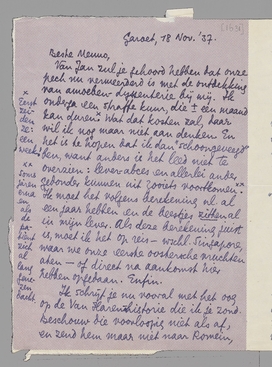 Garoet, 18 Nov. '37.
Beste Menno,
Van Jan zul je gehoord hebben dat onze
pech nu vermeerderd is met de ontdekking
van amoeben-dysenterie bij mij. Ik
onderga een straffe kuur, die ± een maand
kan duren. Wat dat kosten zal, daar
wil ik nog maar niet aan denken. En
het is te hopen dat ik dan "schoongeveegd"
ben, want anders is het leed niet te
overzien: leverabces en allerlei ander
gedonder kunnen uit zoiets voortkomen.**
Ik moet het volgens berekening nl al
een jaar hebben en de beestjes zitten al
in mijn lever. Als deze berekening juist
is, moet ik het op reis – wschl. Singapore,
waar we onze eerste oostersche vruchten
aten – of direct na aankomst hier
hebben opgedaan. Enfin.
Ik schrijf je nu vooral met het oog
op de Van Harenhistorie die ik je zond.
Beschouw die voorloopig niet als af,
en zend hem maar niet naar Romein,
x
Eerst
zei
den
ze:
een
week!
xx
Soms
jaren
en
als
de
pa-
tiënt
zich
al
lang
gene-
zen
dacht.